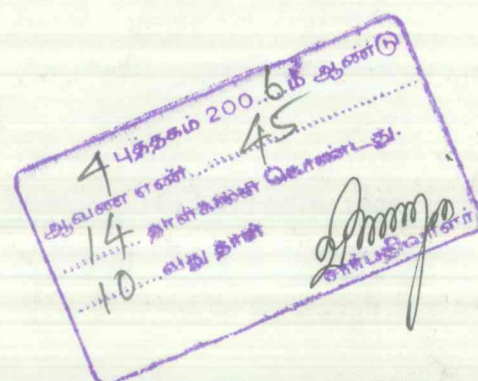 4 புத்தகம் 2006ம் ஆண்டு
ஆவண எண் 45
14 தாள்களை கொண்டது.
10 வது தாள்
சார்பதிவாளர்